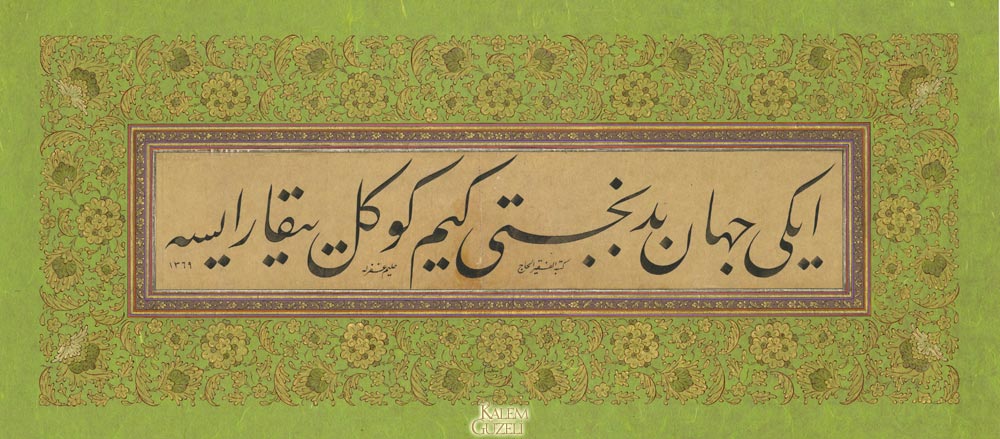 ایکی جهان بدبختی کیم کوکل ییقار ایسه
کتبه الفقیر الحاج حلیم غفرله
١٣٦٩
KALEM
GÜZELİ